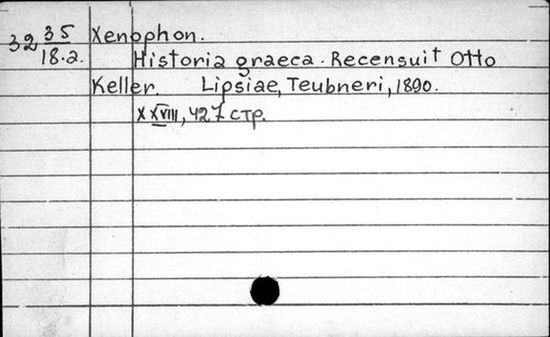 32 35/18.2. Xenophon.
Historia graeca. Recensuit Otto
Keller. Lipsiae, Teubneri, 1890.
XXVIII, 427 стр.